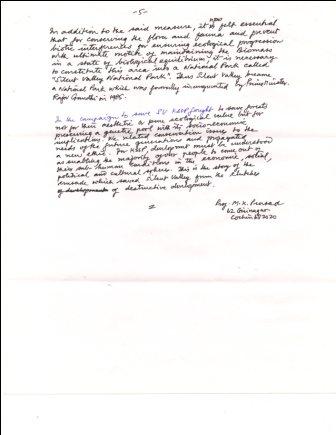 - 5 -
In addition to the said measure, it was felt essential
that for conserving the flora and fauna and prevent
biotic interference for ensuring ecological progression
with ultimate motive of maintaining the Biomass
in a state of biological equilibrium, it is necessary
to constitute this area into a National Park called
"Silent Valley National Park". Thus Silent Valley became
a National Park which was formally inaugurated by Prime Minister
Rajiv Gandhi in 1985.
In the campaign to save SV KSSP fought to save forests
not for their aesthetic or pure ecological value but for
preserving a genetic pool with its socio-economic
implications. He related conservation issue to the
needs of the future generation and propagated
a new ethic. For KSSP, development must be understood
as enabling the majority of poor people to come out of
their sub-human conditions in the economic, social,
political and cultural sphere. This is the story of the
crusade which saved Silent Valley from the clutches
of destructive development.
Prof. M.K. Prasad
62 Girinagar
Cochin 682020